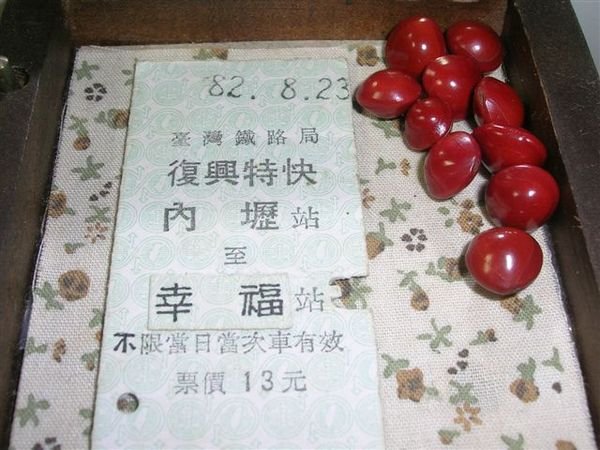 82. 8.23
臺灣鐵路局
復興特快
內壢站
至
幸福站
不限當日當次車有效
票價13元